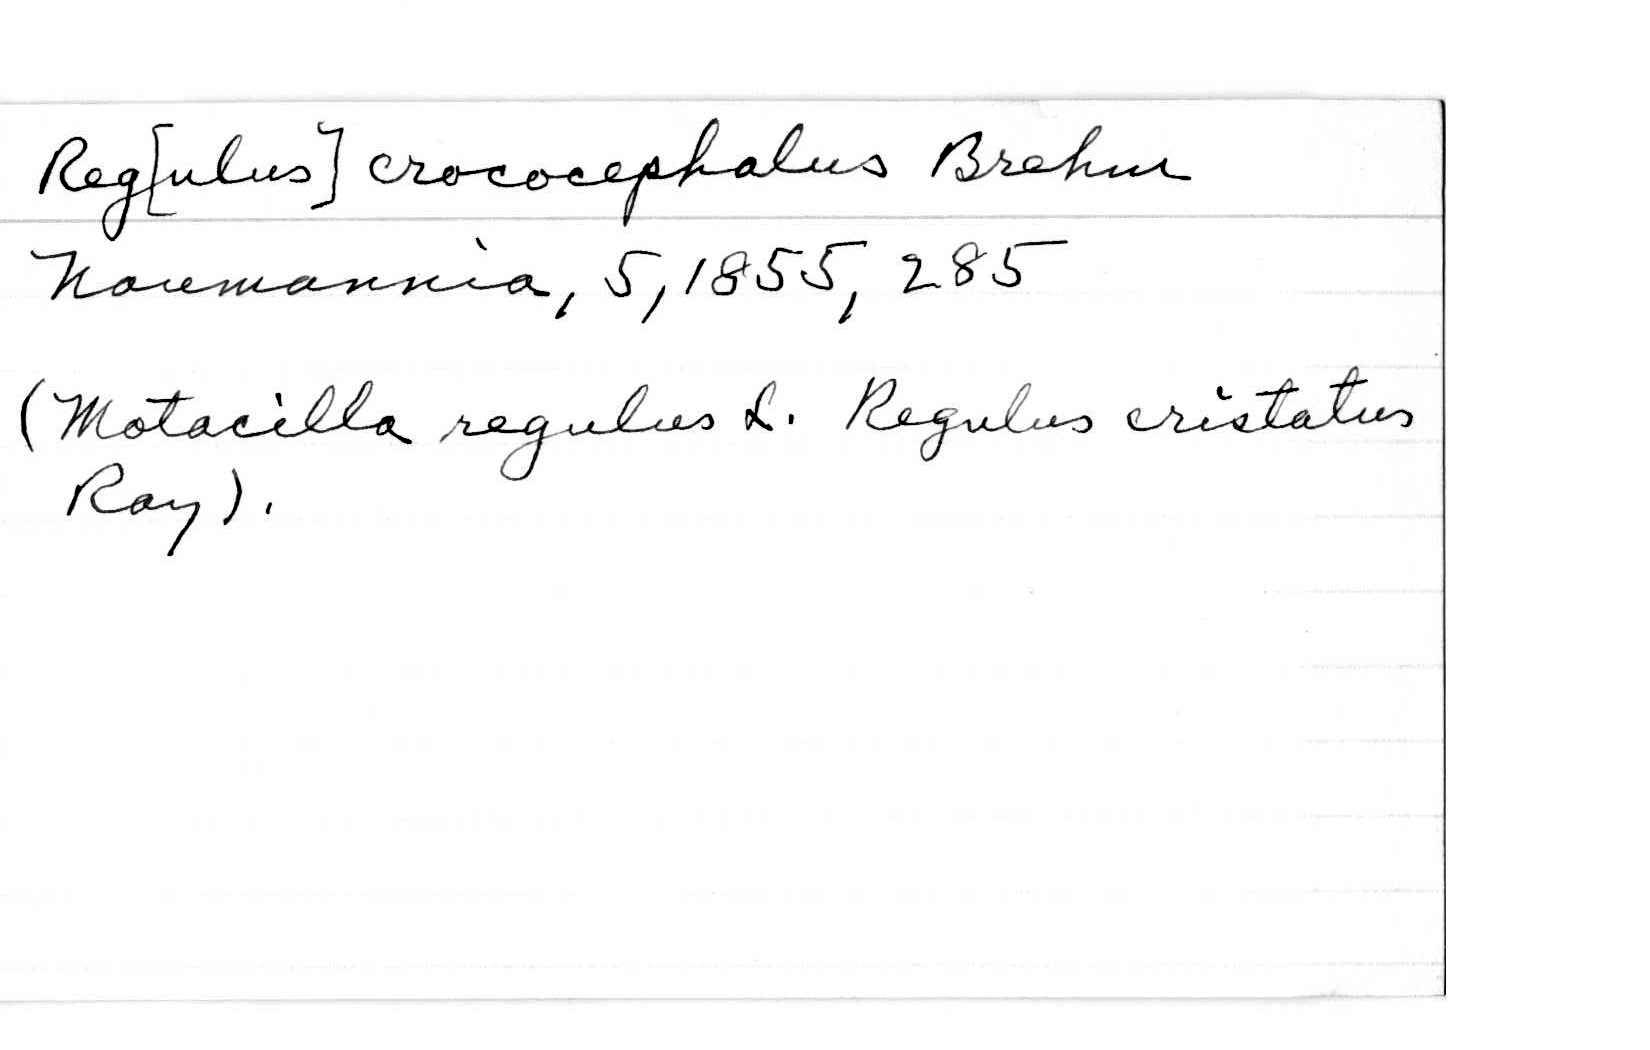 Reg[ulus] crococephalus Brehm
Naumannia, 5, 1855, 285
(Motacilla regulus L. Regulus cristatus
Ray).